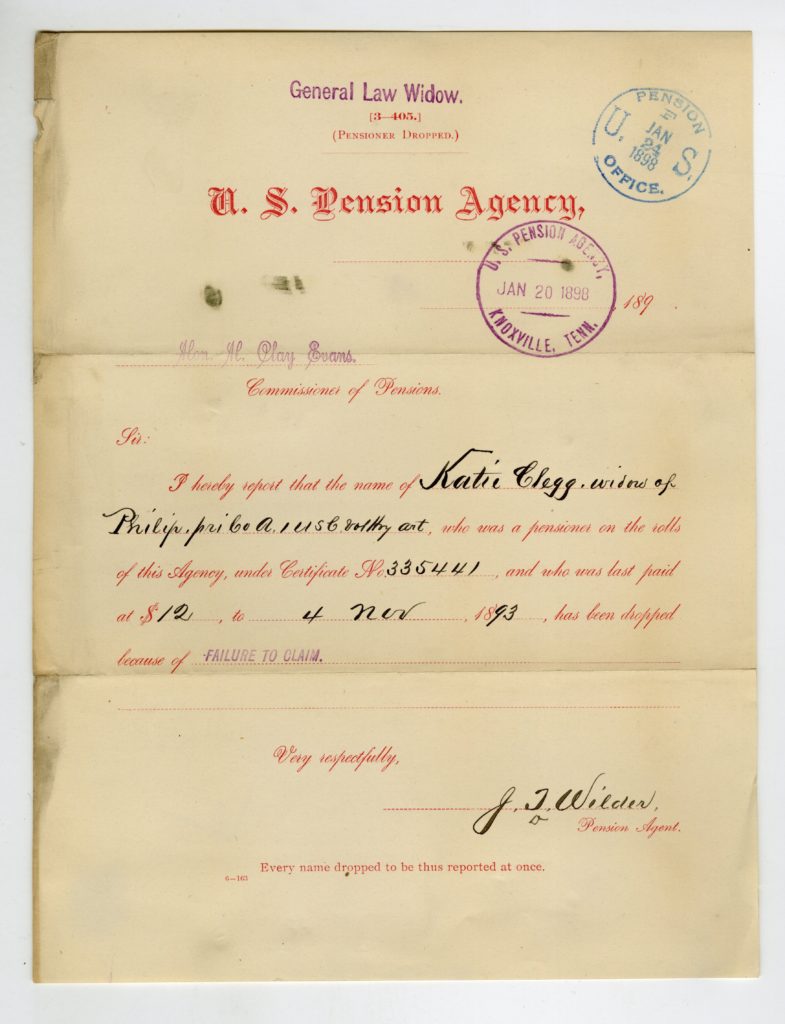 General Law Widow.
[3—405.]
(Pensioner Dropped.)
PENSION
U. S.
JAN
24
1898
OFFICE.
U. S. Pension Agency,
U. S. PENSION AGENCY,
JAN 20 1898
KNOXVILLE, TENN.
, 189 .
Hon. H. Clay Evans.
Commissioner of Pensions.
Sir:
I hereby report that the name of Katie Clegg, widow of
Philip, pri Co A. 1 USC Vol Hvy art, who was a pensioner on the rolls
of this Agency, under Certificate No. 335441, and who was last paid
at $12, to 4 Nov, 1893, has been dropped
because of FAILURE TO CLAIM.
Very respectfully,
J. T. Wilder,
Pension Agent.
Every name dropped to be thus reported at once.
6—163